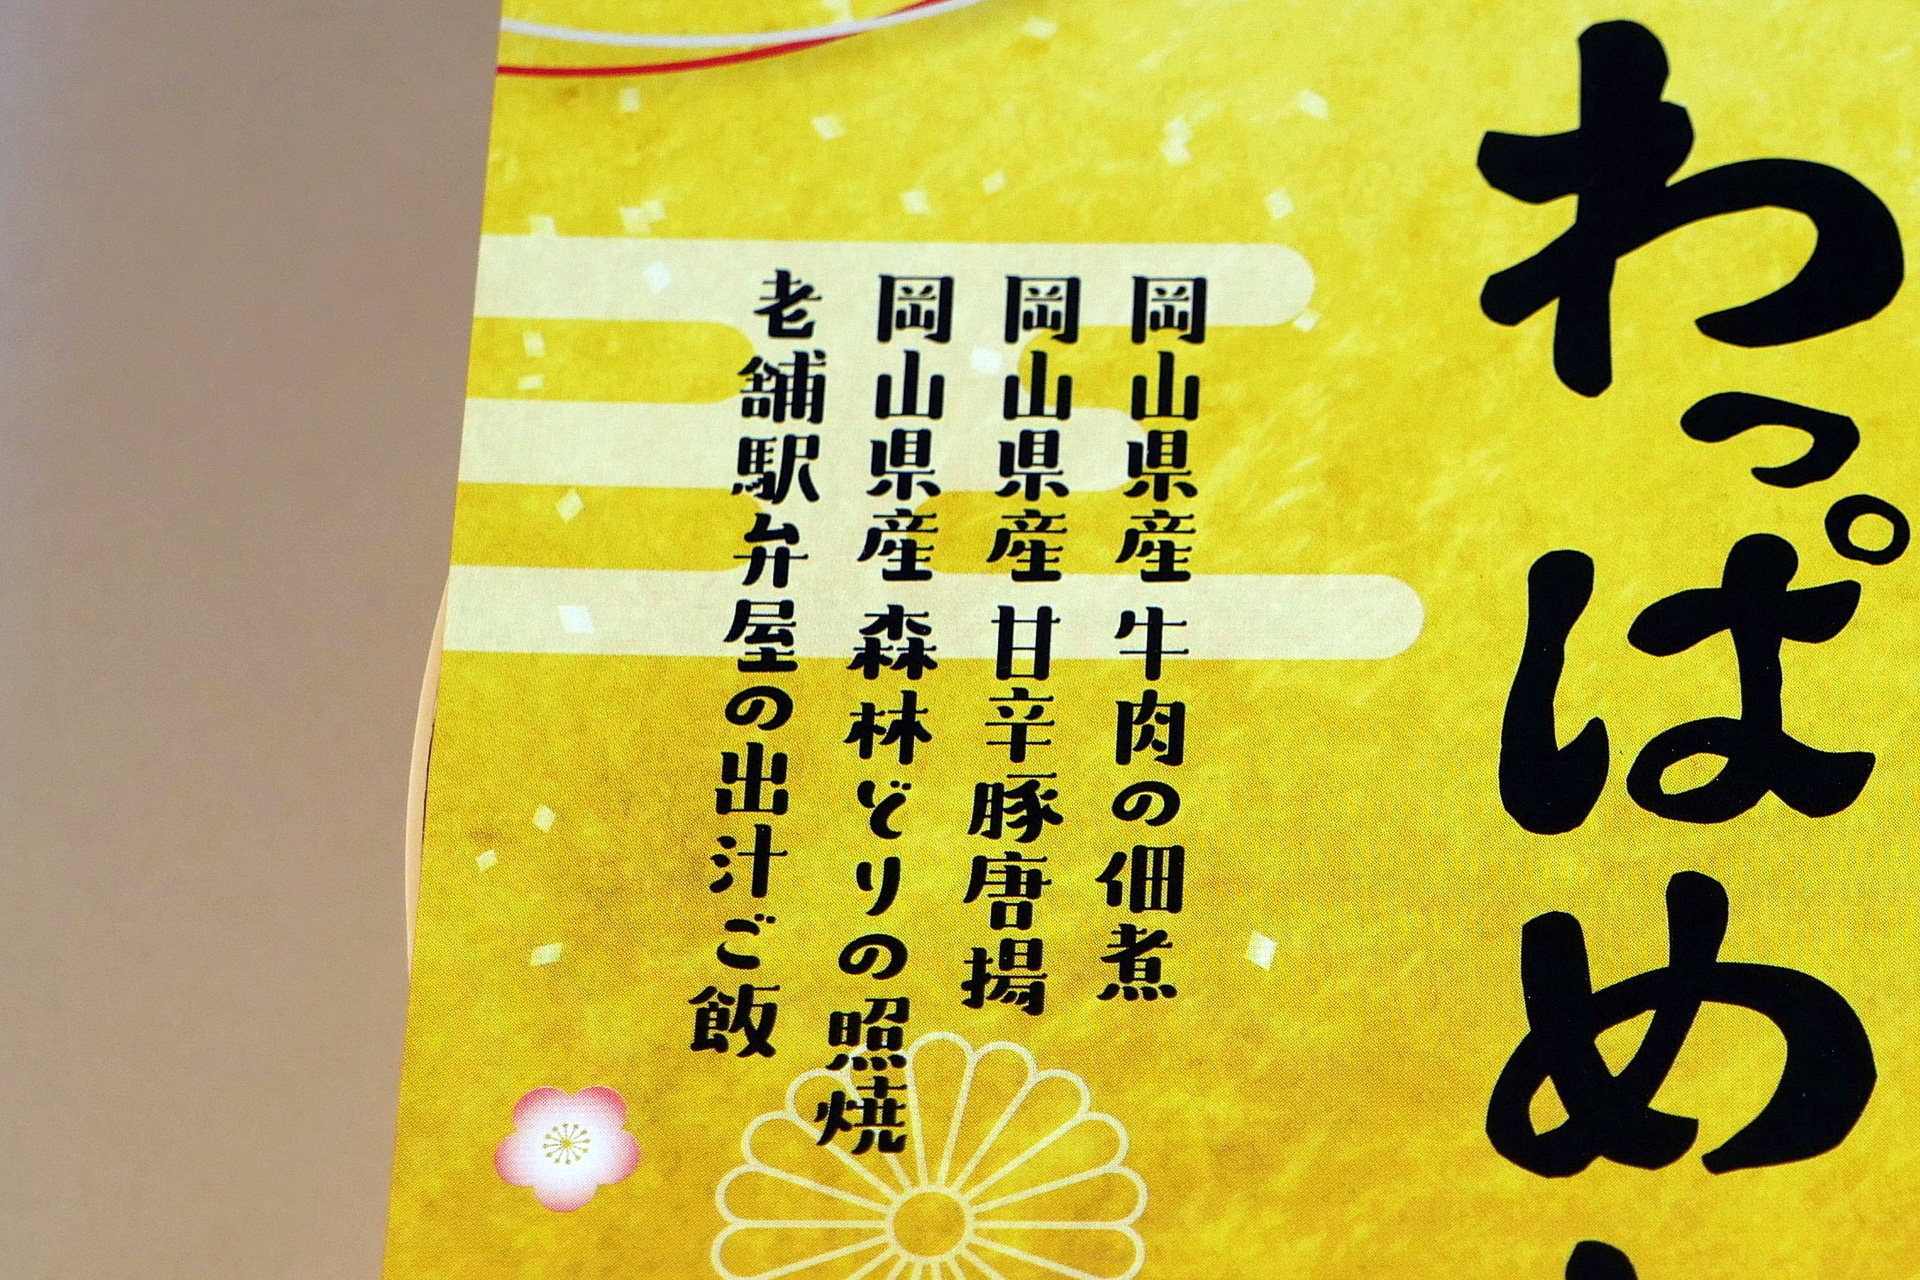 わっぱめ
岡山県産 牛肉の佃煮
岡山県産 甘辛豚唐揚
岡山県産 森林どりの照焼
老舗駅弁屋の出汁ご飯